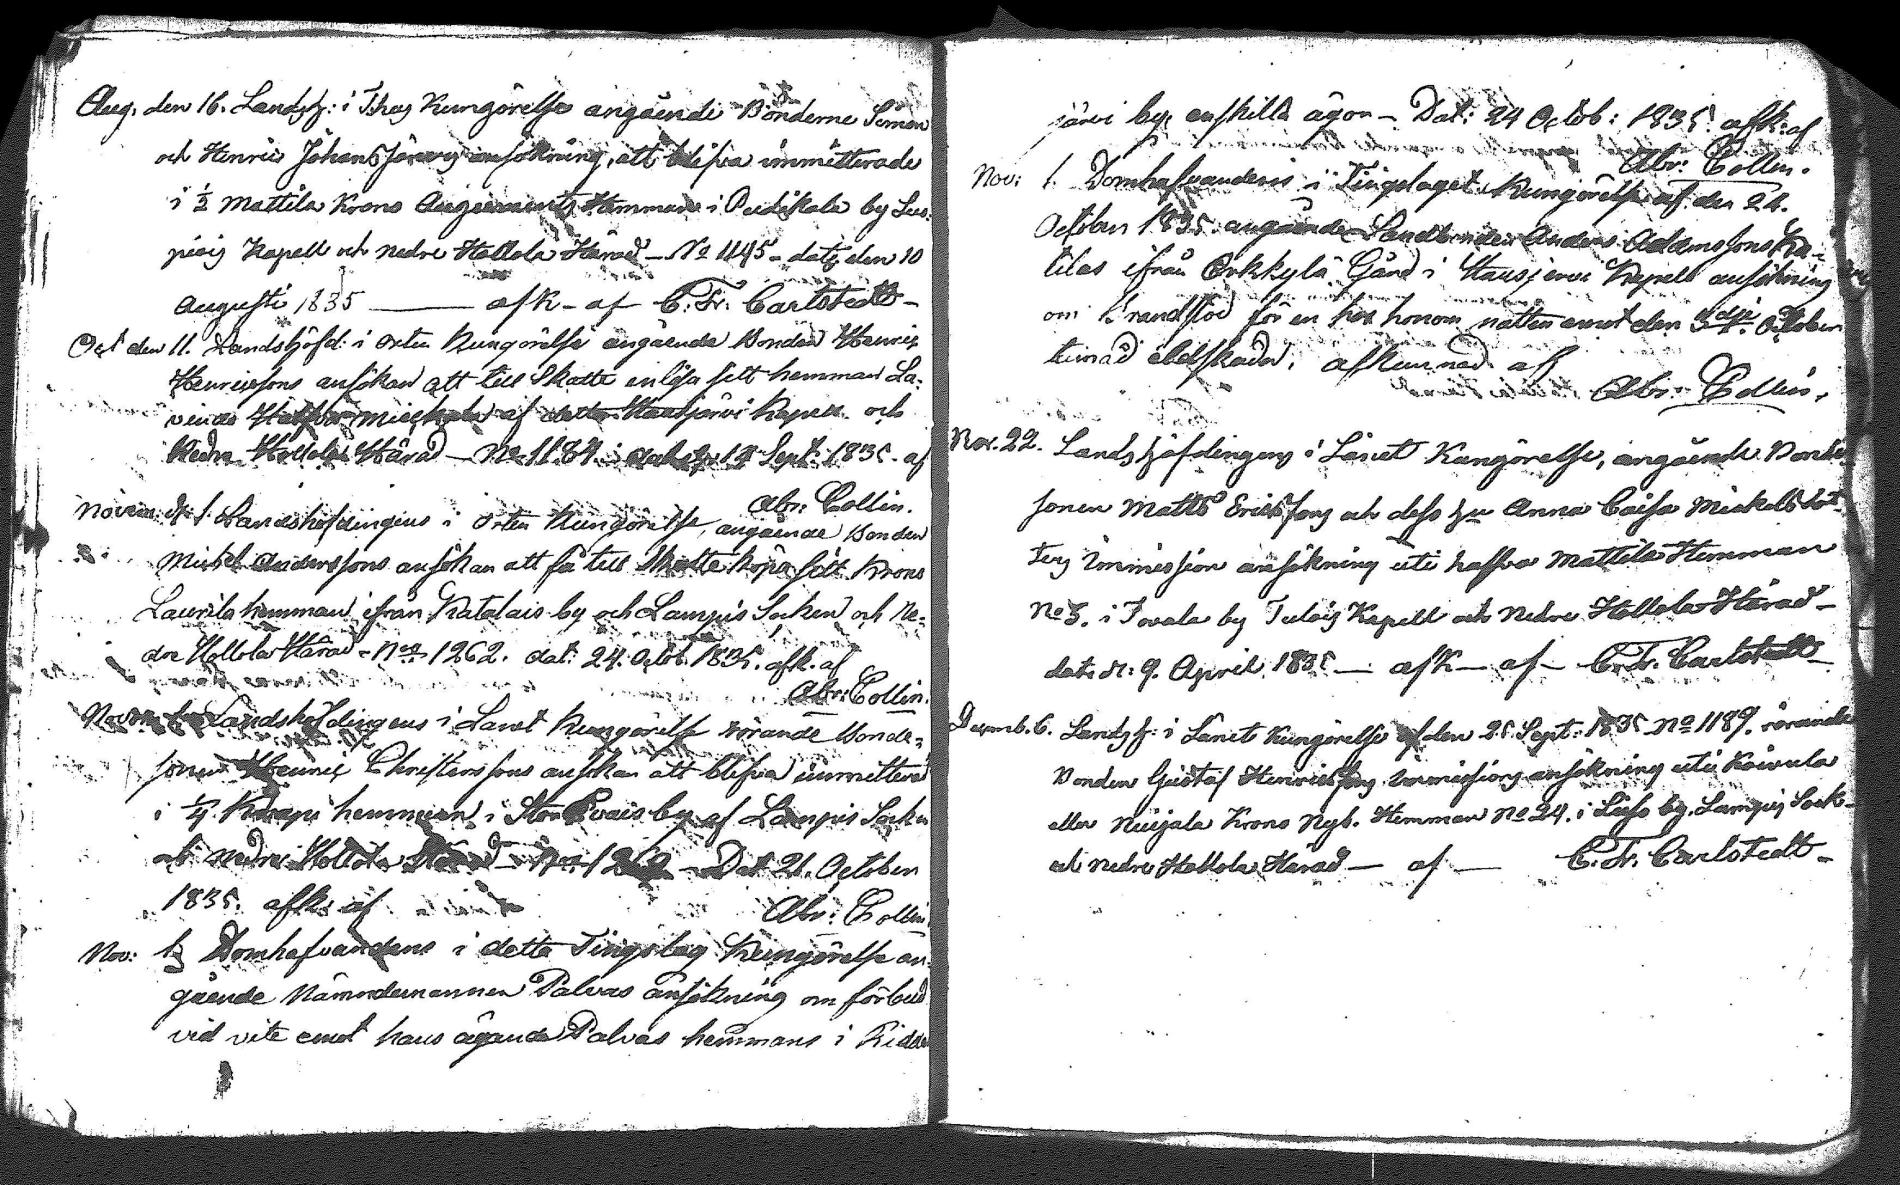 Aug. den 16. Landsh: i Thus Kungörelse angående Bönderne Simon
och Henric Johansson ansökning, att blifva immitterade
i ½ Mattila Krono Augments Hemman i Pudikala by
Kapell och nedre Hollola Härad – No 1145 – dat. den 10
Augusti 1835 — afk – af C. Fr. Carlstedt –
Oct den 11. Landshöfd: i Orten Kungörelse angående Bonden Henric
Henricssons ansökan att till Skatte inlösa sitt hemman La-
af detta Hausjärvi Kapell och
Nedre Hollola Härad – No 1184. Sept: 1835. af
Abr: Collin.
Novem. d. 1. Landshöfdingens i Orten Kungörelse, angående Bonden
Michel Anderssons ansökan att få till Skatte köpa sitt Krono
Laurila hemman, ifrån Katalais by och Lampis Socken och Ne-
dre Hollola Härad – No 1262. dat: 24. Octob. 1835. afk. af
Abr: Collin.
Landshöfdingens i Länet Kungörelse rörande Bonde-
sonen Henric Christerssons ansökan att blifva immitterad
i ¼ hemman, i by af Lampis Socken
och nedre Hollola Härad – Dat 21. October
1835. afk: af Abr: Collin
Nov: 1. Domhafvandens i detta Tingslag Kungörelse an-
gående Nämndemannen Palvas ansökning om förbud
vid vite emot hans ägande Palvas hemmans i
järvi by enskilta ägor – Dat: 24 Octob: 1835. afk: af
Abr: Collin.
Nov: 1. Domhafvandens i Tingslaget Kungörelse af den 24.
October 1835. angående Landbonden Anders Adamssons
tilas ifrån Erkkylä Gård i Hausjervi Kapell ansökning
om Brandstod för en hos honom natten emot den 3dje October
timad eldskada. afkunnad af
Abr: Collin.
Nov. 22. Landshöfdingens i Länet Kungörelse, angående Bonde-
sonen Matts Ericssons och dess hu Anna Caisa Mickelsdot-
ters Immission ansökning uti halfva Mattila Hemman
No 3. i Tovala by Tulois Kapell och Nedre Hollola Härad –
dat. d: 9. April 1835 — afk – af – C. Fr. Carlstedt –
Decemb. 6. Landsh: i Länets Kungörelse af den 25. Sept: 1835 No 1189. rörande
Bonden Gustaf Henricssons Immissions ansökning uti Koivula
eller Nuijala Krono Nyb. Hemman No 24. i by, Lampis Sock-
och nedre Hollola Härad — af — C. Fr. Carlstedt –